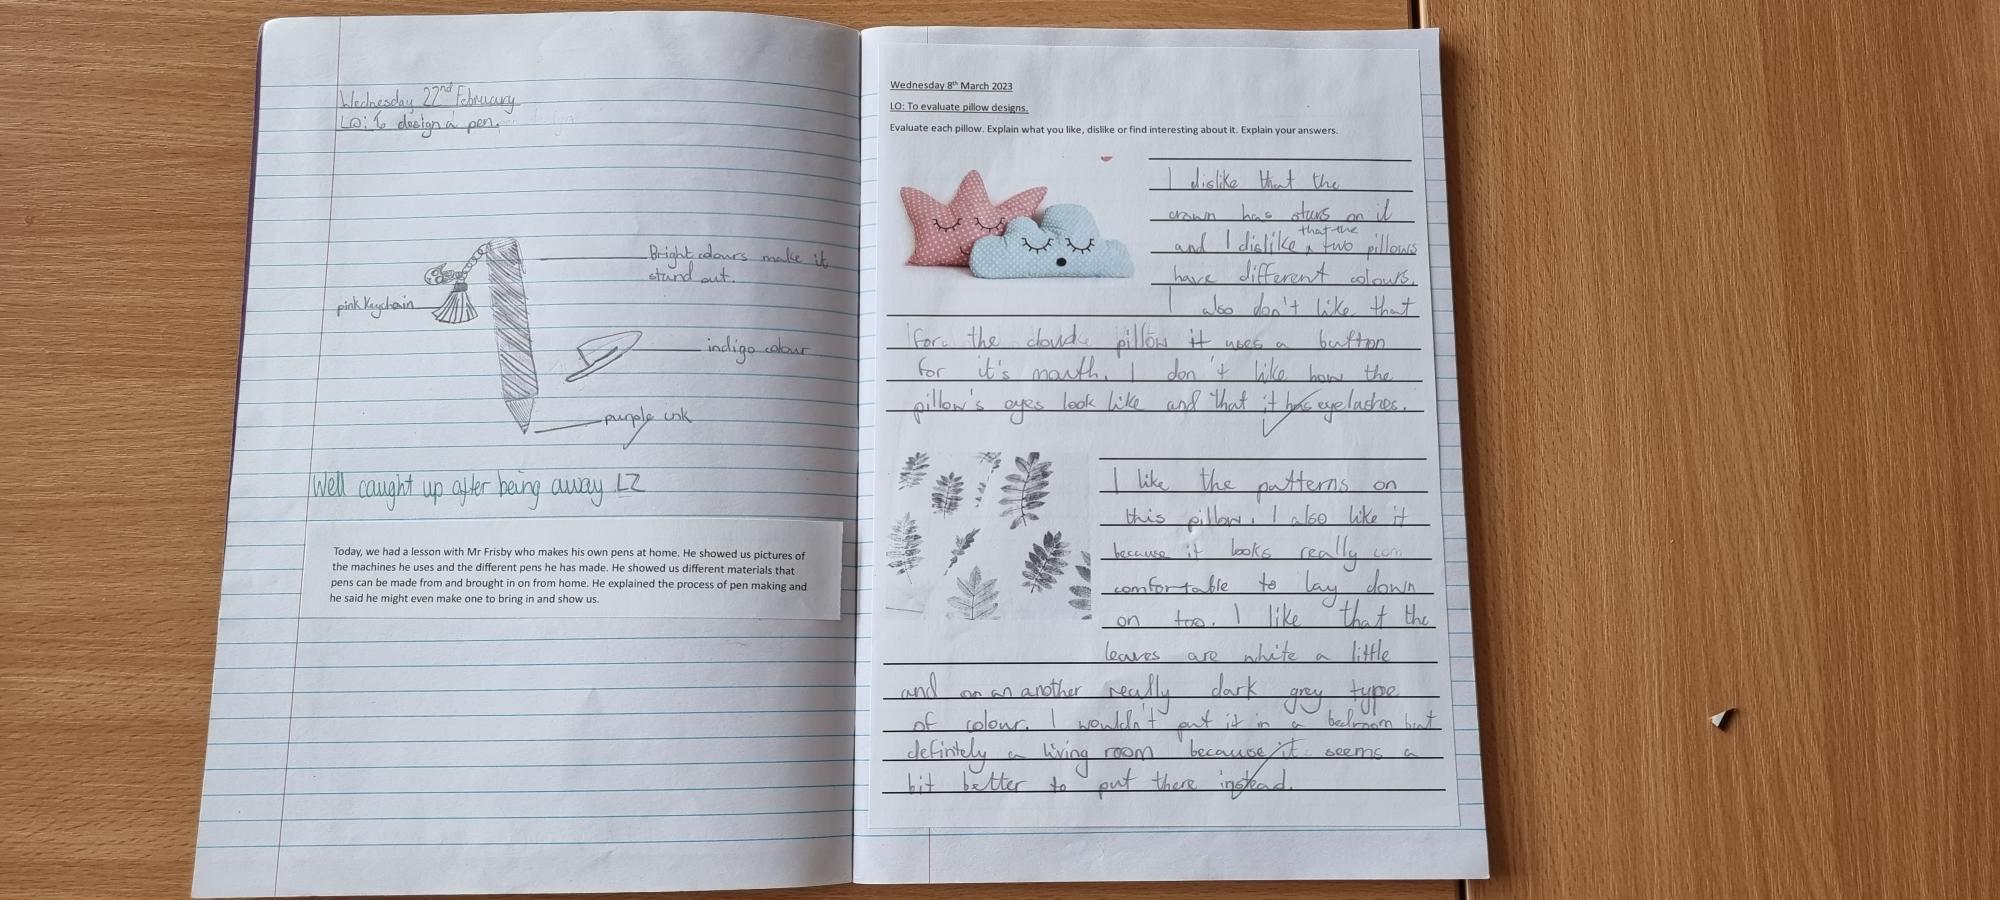 Wednesday 22nd February
LO: To design a pen.
Bright colours make it
stand out.
pink Keychain
indigo colour
purple ink
Well caught up after being away LZ
Today, we had a lesson with Mr Frisby who makes his own pens at home. He showed us pictures of
the machines he uses and the different pens he has made. He showed us different materials that
pens can be made from and brought in on from home. He explained the process of pen making and
he said he might even make one to bring in and show us.
Wednesday 8th March 2023
LO: To evaluate pillow designs.
Evaluate each pillow. Explain what you like, dislike or find interesting about it. Explain your answers.
I dislike that the
crown has stars on it
and I dislike that the two pillows
have different colours.
I also don't like that
for the cloud pillow it uses a button
for it's mouth. I don't like how the
pillow's eyes look like and that it has eyelashes.
I like the patterns on
this pillow. I also like it
because it looks really com
comfortable to lay down
on too. I like that the
leaves are white a little
and on an another really dark grey type
of colour. I wouldn't put it in a bedroom but
definitely a living room because it seems a
bit better to put there instead.